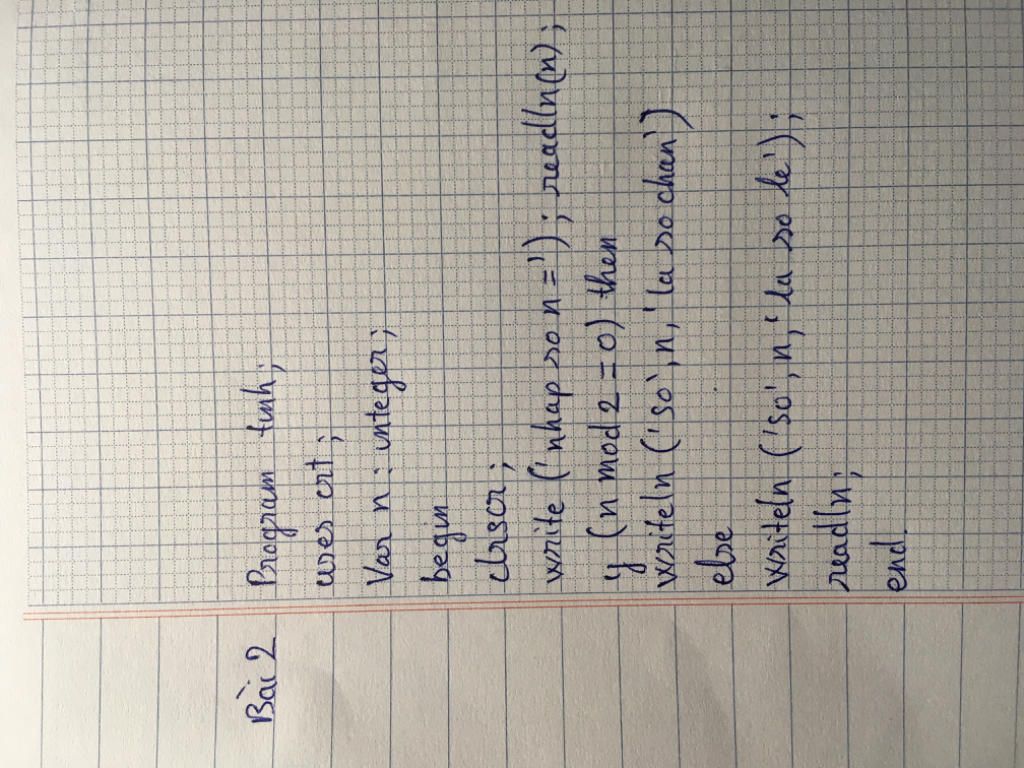 Bài 2
Program tinh;
uses crt;
Var n : integer;
begin
clrscr;
write ('nhap so n ='); readln(n);
if (n mod 2 = 0) then
writeln ('so', n, 'la so chan')
else
writeln ('so', n, 'la so le');
readln;
end.